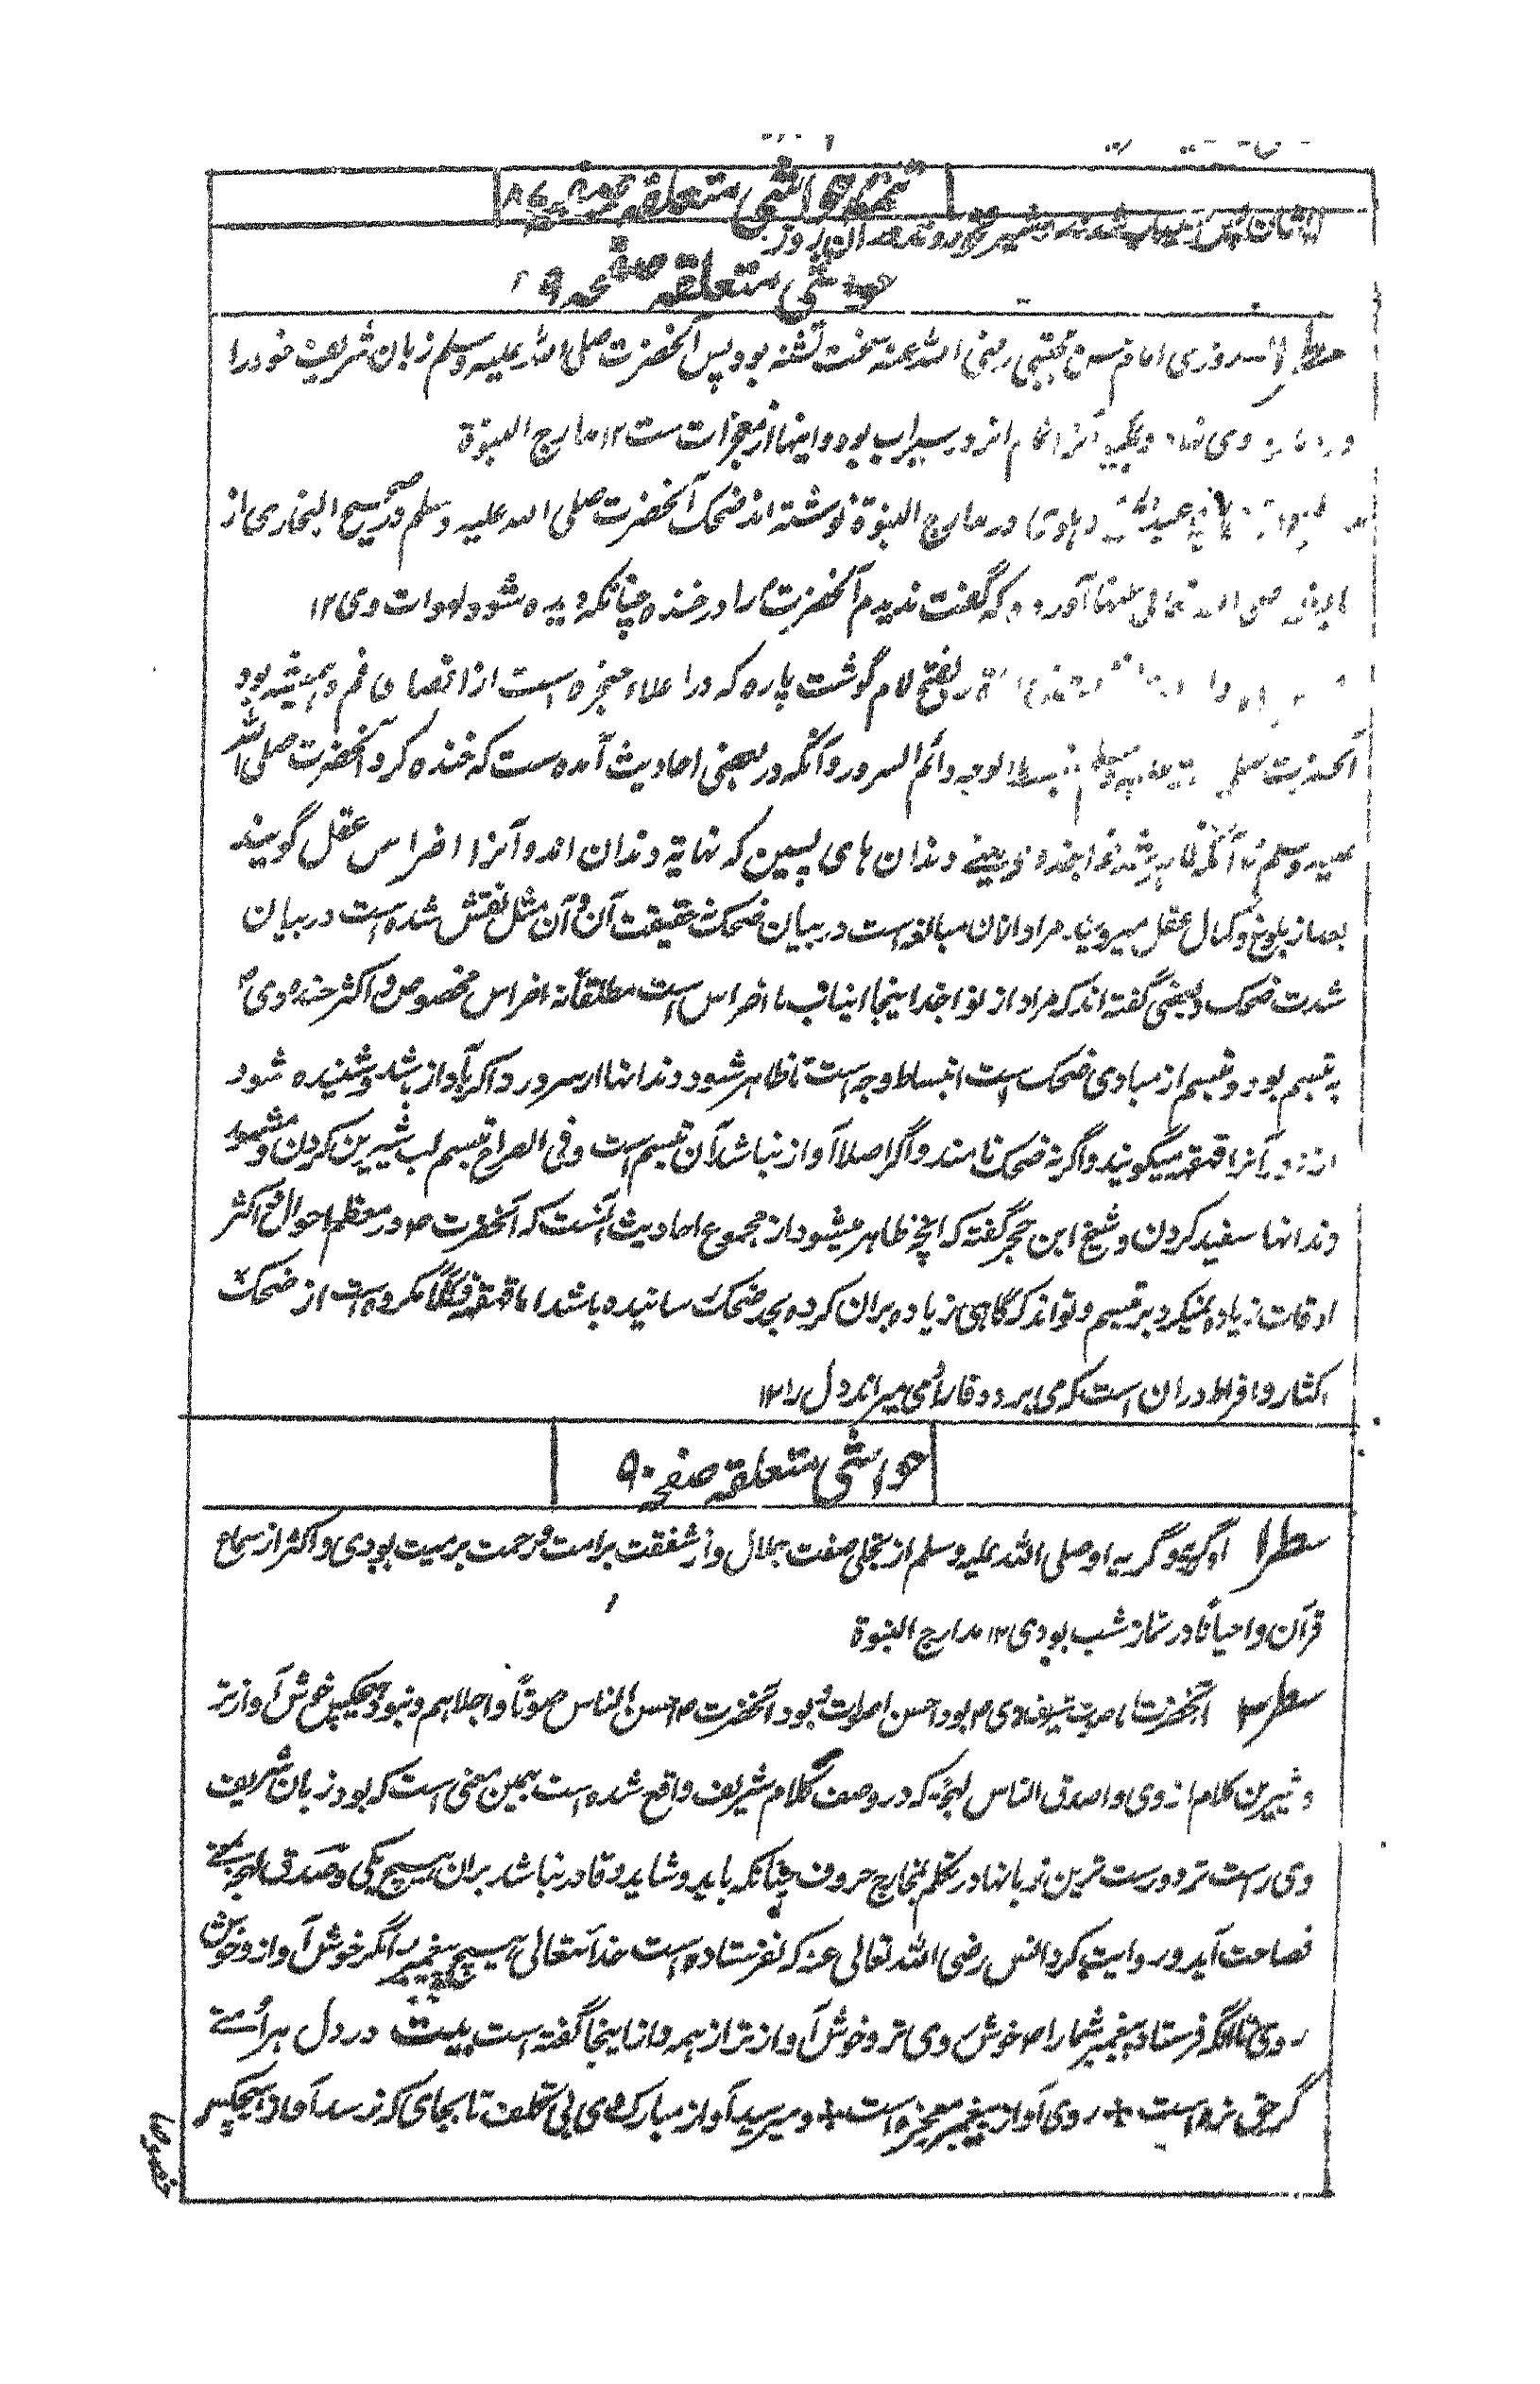 تتمه حواشی متعلقه صفحه ۸۷
ایشان پس سیراب شدند و شیر خوردند آن روز
حواشی متعلقه صفحه ۹
سطر روزی امام حسن مجتبی رضی الله عنه سخت تشنه بود پس آنحضرت صلی الله علیه وسلم زبان شریف خود را
در وی نهاد و آنرا تمام انروز سیراب بود و اینها از معجزات ست ۱۲ مدارج النبوة
عبدالحق دهلوی در مدارج النبوة نوشته اند ضحک آنحضرت صلی الله علیه وسلم در صحیح البخاری از
رضی الله تعالی عنها آورده که گفت ندیدم آنحضرت را در خنده چنانکه دیده شود لهوات وی ۱۲
بفتح لام گوشت پاره که در اعلاء حنجره است از اقصای فم و همیشه بود
آنحضرت صلی الله علیه وسلم منبسط الوجه دائم السرور و آنکه در بعضی احادیث آمده ست که خنده کرد آنحضرت صلی الله
علیه وسلم تا آنکه ظاهر شد نواجذه و یعنے دندان های پسین که نهایة دندان اند و آنرا اضراس عقل گویند
بعد از بلوغ و کمال عقل میروید مراد ازان مبالغه است در بیان ضحک نه حقیقت آن و آن مثل نقش شده است در بیان
شدت ضحک و بعضی گفته اند که مراد از نواجذ اینجا انیاب یا اضراس است مطلقا نه اضراس مخصوص و اکثر خنده وی ۴
به تبسم بود و تبسم از مبادی ضحک است انبساط وجه است تا ظاهر شود دندانها از سرور و اگر بآواز باشد و شنیده شود
از دور آنرا قهقهه میگویند و اگر نه ضحک نامند و اگر اصلا آواز نباشد آن تبسم است و فی الصراح تبسم لب شیرین کردن و
دندانها سفید کردن و شیخ ابن حجر گفته که آنچه ظاهر میشود از مجموع احادیث آنست که آنحضرت ۴ در معظم احوال و اکثر
اوقات زیاده نمیکرد بر تبسم و تواند که گاهی زیاده بران کرده بحد ضحک رسانیده باشد اما قهقهه مکروه است از ضحک
اکثار و افراط دران است که می برد وقار را و می میراند دل را ۱۲
حواشی متعلقه صفحه ۹۰
سطر ۱ او گریه و گریه او صلی الله علیه وسلم از تجلی صفت جلال و از شفقت بر امت و رحمت بر میت بودی و اکثر از سماع
قرآن و احیانًا در نماز شب بودی ۱۲ مدارج النبوة
سطر ۳ آنحضرت اما صوت شریف وی ۴ بود احسن اصوات و بود آنحضرت ۴ احسن الناس صوتًا و اجلاهم و نبود هیچکس خوش آواز تر
و شیرین کلام از وی و اصدق الناس لهجة که در وصف کلام شریف واقع شده است بهمین معنی است که بود زبان شریف
وی راست تر و درست ترین زبانها در تکلم بمخارج حروف چنانکه باید و شاید و قادر نباشد بران هیچ یکی و صدق لهجه بمعنے
فصاحت آید و روایت کرد انس رضی الله تعالی عنه که نفرستاده است خدا تعالی هیچ پیغمبر را مگر خوش آواز و خوش
روی تا آنکه فرستاد پیغمبر شما را ۴ خوش روی تر و خوش آواز تر از همه و ازینجا گفته است بیت در دل هر اُمتے
کز حق مزه است + روی و آواز پیغمبر معجزه است + و میرسید آواز مبارک وی بی تکلف تا بجای که نرسد آواز هیچکس